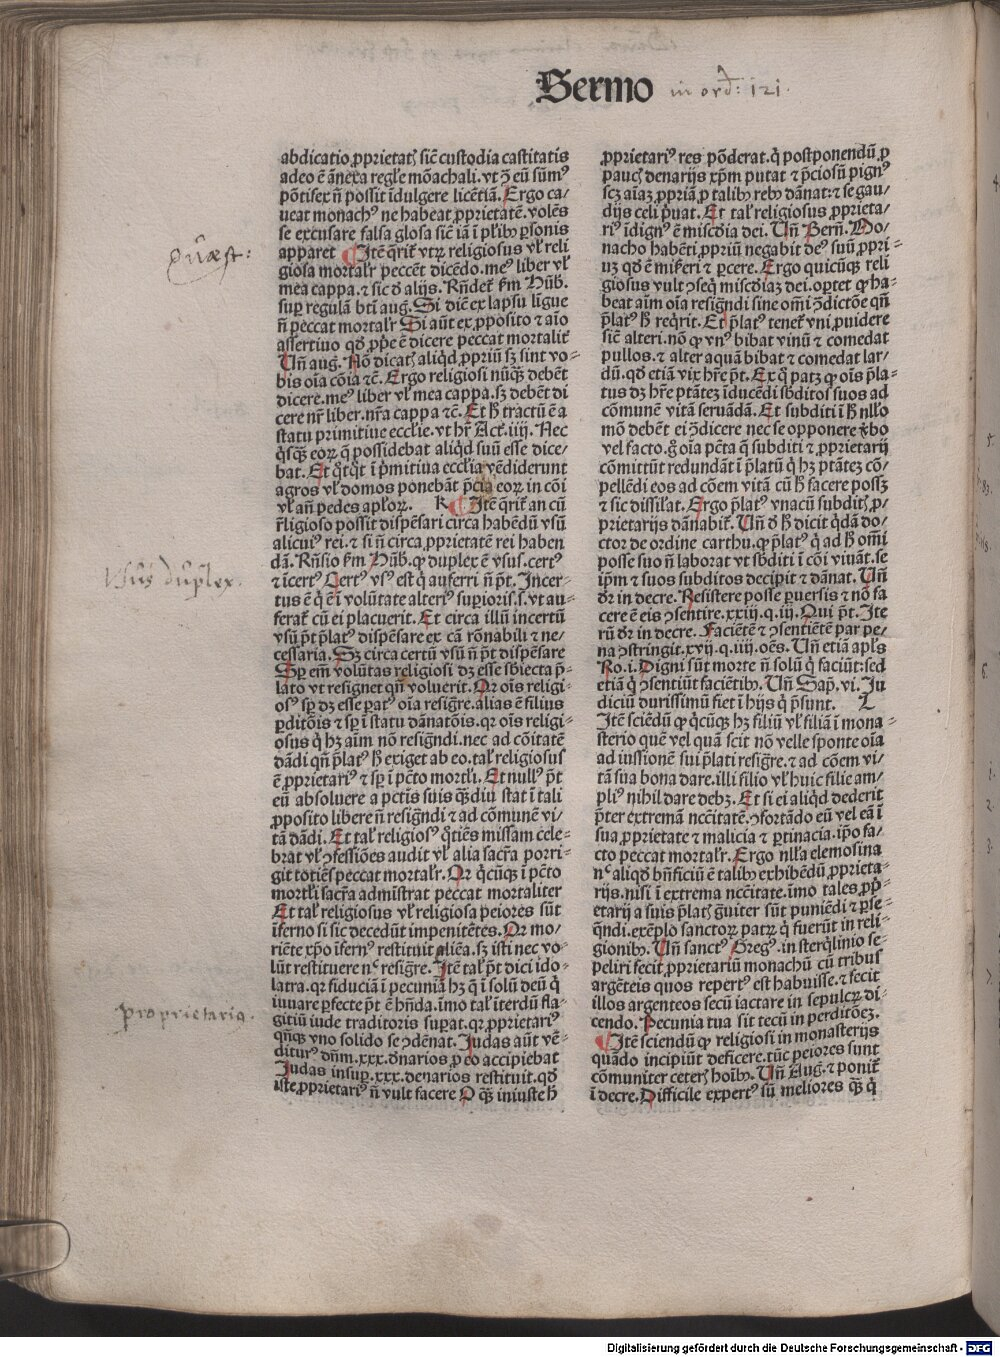 Sermo in ord: 121.
abdicatio ꝓprietatꝭ sic̄ custodia castitatis
adeo ē ãnexa regl̓e mõachali. vt ꝫ eũ sũmꝰ
põtifex ñ possit ĩdulgere licẽtiã. Ergo ca/
ueat monachꝰ ne habeat ꝓprietatẽ. volẽs
se excusare falsa glosa sic̄ iã ĩ pl̓ibꝰ ꝑsonis
apparet ¶ Itẽ q̄rit̓ vtrꝫ religiosus vl̓ reli
giosa mortal̓r peccẽt dicẽdo. meꝰ liber vl̓
mea cappa. ⁊ sic ð alijs. Rñdet̓ ẜm Hũb.
suꝑ regulã bti̓ aug. Si dic̄t ex lapsu ligue
ñ peccat mortal̓r Si aũt ex ꝓposito ⁊ aĩo
assertiuo qð ꝓpe ē dicere peccat mortalit̓
Uñ aug. Nõ dicatꝭ aliqd̓ ꝓpriũ sꝫ sint vo-
bis oĩa cõia ⁊c̄. Ergo religiosi nũqꝫ debẽt
dicere. meꝰ liber vl̓ mea cappa. sꝫ debẽt di
cere nr̄ liber. nr̄a cappa ⁊c̄. Et ħ tractũ ē a
statu primitiue eccl̓ie. vt hr̄ Act̓. iiij. Nec
q̇sqꝫ eoꝝ q̄ possidebat aliqd̓ suũ esse dice-
bat. Et q̇tq̇t ĩ p̓mitiua eccl̓ia vẽdiderunt
agros vl̓ domos ponebãt p̓cia eoꝝ in cõi
vl̓ añ pedes apl̓oꝝ. K ¶ Itẽ q̄rit̓ an cũ
r̓ligioso possit dispẽsari circa habẽdũ vsũ
alicuiꝰ rei. ⁊ si ñ circa ꝓprietatẽ rei haben
dã. Rñsio ẜm Hũb. ꝙ duplex ē vsus. certꝰ
⁊ ĩcertꝰ Certꝰ vsꝰ est q̇ auferri ñ pt̄. Incer-
tus ē q̇ ē ĩ volũtate alteriꝰ suꝑioris. s. vt au-
ferat̓ cũ ei placuerit. Et circa illũ incertũ
vsũ pt̄ p̄latꝰ dispẽsare ex cã rõnabili ⁊ ne-
cessaria. Sꝫ circa certũ vsũ ñ pt̄ dispẽsare
Sꝑ em̃ volũtas religiosi dꝫ esse sb̓iecta p̄-
lato vt resignet qñ voluerit. Qr oĩs religi-
osꝰ sꝑ dꝫ esse ꝑatꝰ oĩa resigr̃e. alias ē filius
ꝑditõis ⁊ sꝑ ĩ statu dãnatõis. qr oĩs religi-
osus q̇ hꝫ aĩm nõ resigñdi. nec ad cõitatẽ
dãdi qñ p̄latꝰ ħ exiget ab eo. tal̓ religiosus
ē ꝓprietariꝰ ⁊ sꝑ ĩ pc̄to mortl̓i. Et nullꝰ pt̄
eũ absoluere a pctĩs suis qꝫdiu stat ĩ tali
ꝓposito libere ñ resigñdi ⁊ ad cõmunẽ vi-
tã dãdi. Et tal̓ religiosꝰ q̇tiẽs missam cele-
brat vl̓ ꝯfessiões audit vl̓ alia sacr̃a porri-
git totiẽs peccat mortal̓r. Qr q̇cũqꝫ ĩ pc̄to
mortl̓i sacr̃a admĩstrat peccat mortaliter
Et tal̓ religiosus vl̓ religiosa peiores sũt
ĩferno si sic decedũt impenitẽtes. Qr mo/
riẽte xp̄o ĩfernꝰ restituit aliẽa. sꝫ isti nec vo-
lũt restituere nc̄ resigr̃e. Itẽ tal̓ pt̄ dici ido-
latra. qr fiduciã ĩ pecunia hꝫ q̄ ĩ solũ deũ q̇
iuuare ꝑfecte pt̄ ē hñda. ĩmo tal̓ ĩterdũ fla-
gitiũ iude traditoris suꝑat. qr ꝓprietariꝰ
qñqꝫ vno solido se ꝯdẽnat. Judas aũt vẽ-
ditur dñm. xxx. ðnarios ꝓ eo accipiebat
Judas insuꝑ. xxx. denarios restituit. qð
iste. ꝓprietariꝰ ñ vult facere O qꝫ iniuste ħ
ꝓprietariꝰ res põderat. q̇ postponendũ ꝓ
paucꝭ denarijs xp̄m putat ⁊ p̄ciosũ pignꝰ
scꝫ aĩaꝫ ꝓpriã ꝓ talibꝰ rebꝰ dãnat: ⁊ se gau/
dijs celi p̓uat. Et tal̓ religiosus ꝓprieta/
riꝰ ĩdignꝰ ē mis̃cð̓ia dei. Uñ Bern̄. Mo/
nacho habẽti ꝓpriũ negabit deꝰ suũ ꝓpri-
uꝫ qð ē mis̃eri ⁊ ꝑcere. Ergo quicũqꝫ reli
giosus vult ꝯseq̇ mis̃cð̓iaꝫ dei. oꝑtet ꝙ ha-
beat aĩm oĩa resigñdi sine om̃i ꝯdictõe qñ
p̄latꝰ ħ reqr̓it. Et p̄latꝰ tenet̓ vni ꝓuidere
sic̄ alteri. nõ ꝙ vnꝰ bibat vinũ ⁊ comedat
pullos. ⁊ alter aquã bibat ⁊ comedat lar/
dũ. qð etiã vix hr̃e pt̄. Ex q̇ patꝫ ꝙ oĩs p̄la-
tus dꝫ hr̃e ptãtẽ ĩducẽdi sb̓ditos suos ad
cõmunẽ vitã seruãdã. Et subditi ĩ ħ nll̓o
mõ debẽt ei ꝯdicere nec se opponere v̓bo
vel facto. g̊ oĩa pc̄ta q̄ subditi ⁊ ꝓprietarij
cõmittũt redundãt ĩ p̄latũ q̇ hꝫ ptãtẽ cõ/
pellẽdi eos ad cõem vitã cũ ħ facere possꝫ
⁊ sic dissil̓at. Ergo p̄latꝰ vnacũ subditꝭ ꝓ/
prietarijs dãnabit̓. Uñ ð ħ dicit qd̓ã do/
ctor de ordine carthu. ꝙ p̄latꝰ q̇ ad ħ om̃i
posse suo ñ laborat vt sb̓diti ĩ cõi viuãt. se
ip̄m ⁊ suos subditos decipit ⁊ dãnat. Uñ
dr̄ in decre. Resistere posse ꝑuersis ⁊ nõ fa
cere ē eis ꝯsentire. xxiij. q. iij. Qui pt̄. Ite
rũ dr̄ in decre. Faciẽtẽ ⁊ ꝯsentiẽtẽ par pe/
na ꝯstringit. xvij. q. iiij. oẽs. Uñ etiã apl̓s
Ro. i. Digni sũt morte ñ solũ q̇ faciũt: sed
etiã q̇ ꝯsentiũt faciẽtibꝰ. Uñ Sap̄. vi. Ju
diciũ durissimũ fiet ĩ hijs q̇ p̄sunt. L
Itẽ sciẽdũ ꝙ q̇cũqꝫ hꝫ filiũ vl̓ filiã ĩ mona-
sterio quẽ vel quã scit nõ velle sponte oĩa
ad iussionẽ sui p̄lati resigr̃e. ⁊ ad cõem vi-
tã sua bona dare. illi filio vl̓ huic filie am/
pliꝰ nihil dare debꝫ. Et si ei aliqd̓ dederit
p̄ter extremã nccĩtatẽ. ꝯfortãdo eũ vel eã ĩ
sua ꝓprietate ⁊ malicia ⁊ ꝑtinacia. ip̄o fa/
cto peccat mortal̓r. Ergo nll̓a elemosina
nc̄ aliqd̓ bñficiũ ē talibꝰ exhibẽdũ ꝓprieta-
rijs. nisi ĩ extrema nccĩtate. ĩmo tales ꝓp̓/
etarij a suis p̄latꝭ g̓uiter sũt puniẽdi ⁊ ꝑse-
q̄ndi. exẽplo sanctoꝝ patꝝ q̇ fuerũt in reli-
gionibꝰ. Uñ sanctꝰ Gregꝰ. in sterq̇linio se-
peliri fecit ꝓprietariũ monachũ cũ tribus
argẽteis quos reꝑtꝰ est habuisse. ⁊ fecit
illos argenteos secũ iactare in sepulcꝝ di-
cendo. Pecunia tua sit tecũ in perditõeꝫ.
¶ Itẽ sciendũ ꝙ religiosi in monasterijs
quãdo incipiũt deficere. tũc peiores sunt
cõmuniter ceterꝭ hoĩbꝰ. Uñ Aug̃. ⁊ ponit̓
ĩ decre. Difficile expertꝰ sũ meliores qꝫ q̇
Quæst:
Vsus duplex.
proprietariꝰ.
Digitalisierung gefördert durch die Deutsche Forschungsgemeinschaft - DFG